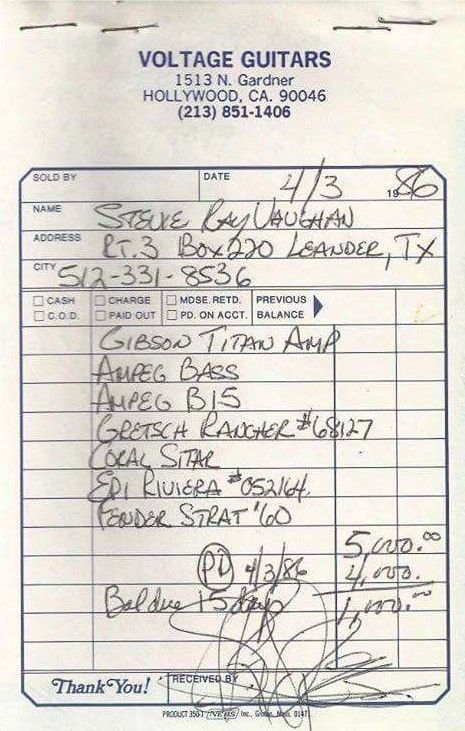 VOLTAGE GUITARS
1513 N. Gardner
HOLLYWOOD, CA. 90046
(213) 851-1406
SOLD BY DATE 4/3 1986
NAME STEVIE RAY VAUGHAN
ADDRESS RT. 3 BOX 220 LEANDER, TX
CITY 512-331-8536
CASH CHARGE MDSE. RETD. PREVIOUS
C.O.D. PAID OUT PD. ON ACCT. BALANCE
GIBSON TITAN AMP
AMPEG BASS
AMPEG B15
GRETSCH RANCHER #68127
CORAL SITAR
EPI RIVIERA #052164
FENDER STRAT '60
5,000.00
PD 4/3/86 4,000.
Bal due 15 days 1,000.00
Thank You! RECEIVED BY
PRODUCT 350-1 NEBS Inc., Groton, Mass. 01471